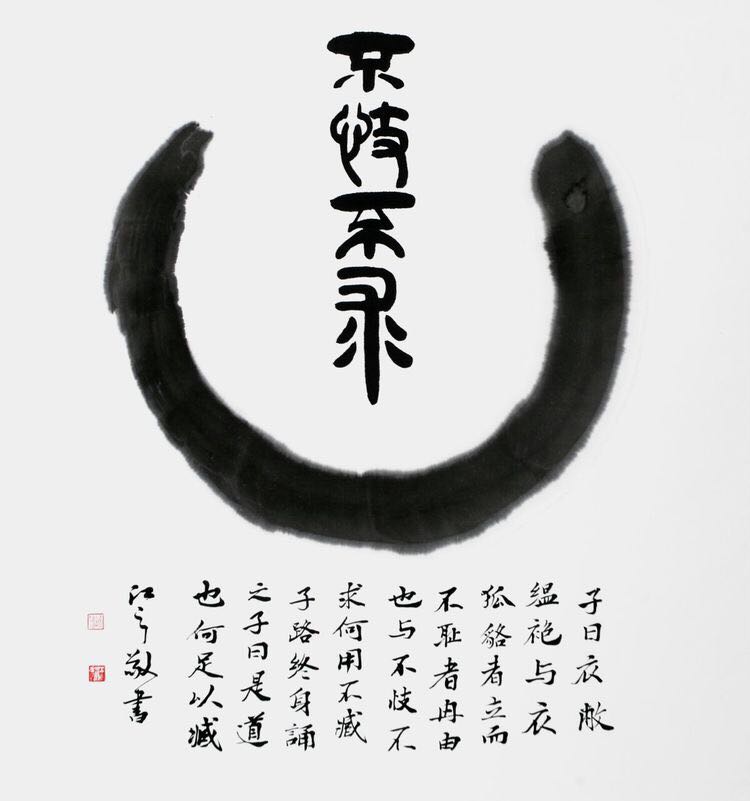 不忮不求
子曰衣敝
缊袍与衣
狐貉者立而
不耻者其由
也与不忮不
求何用不臧
子路终身誦
之子曰是道
也何足以臧
江敬書